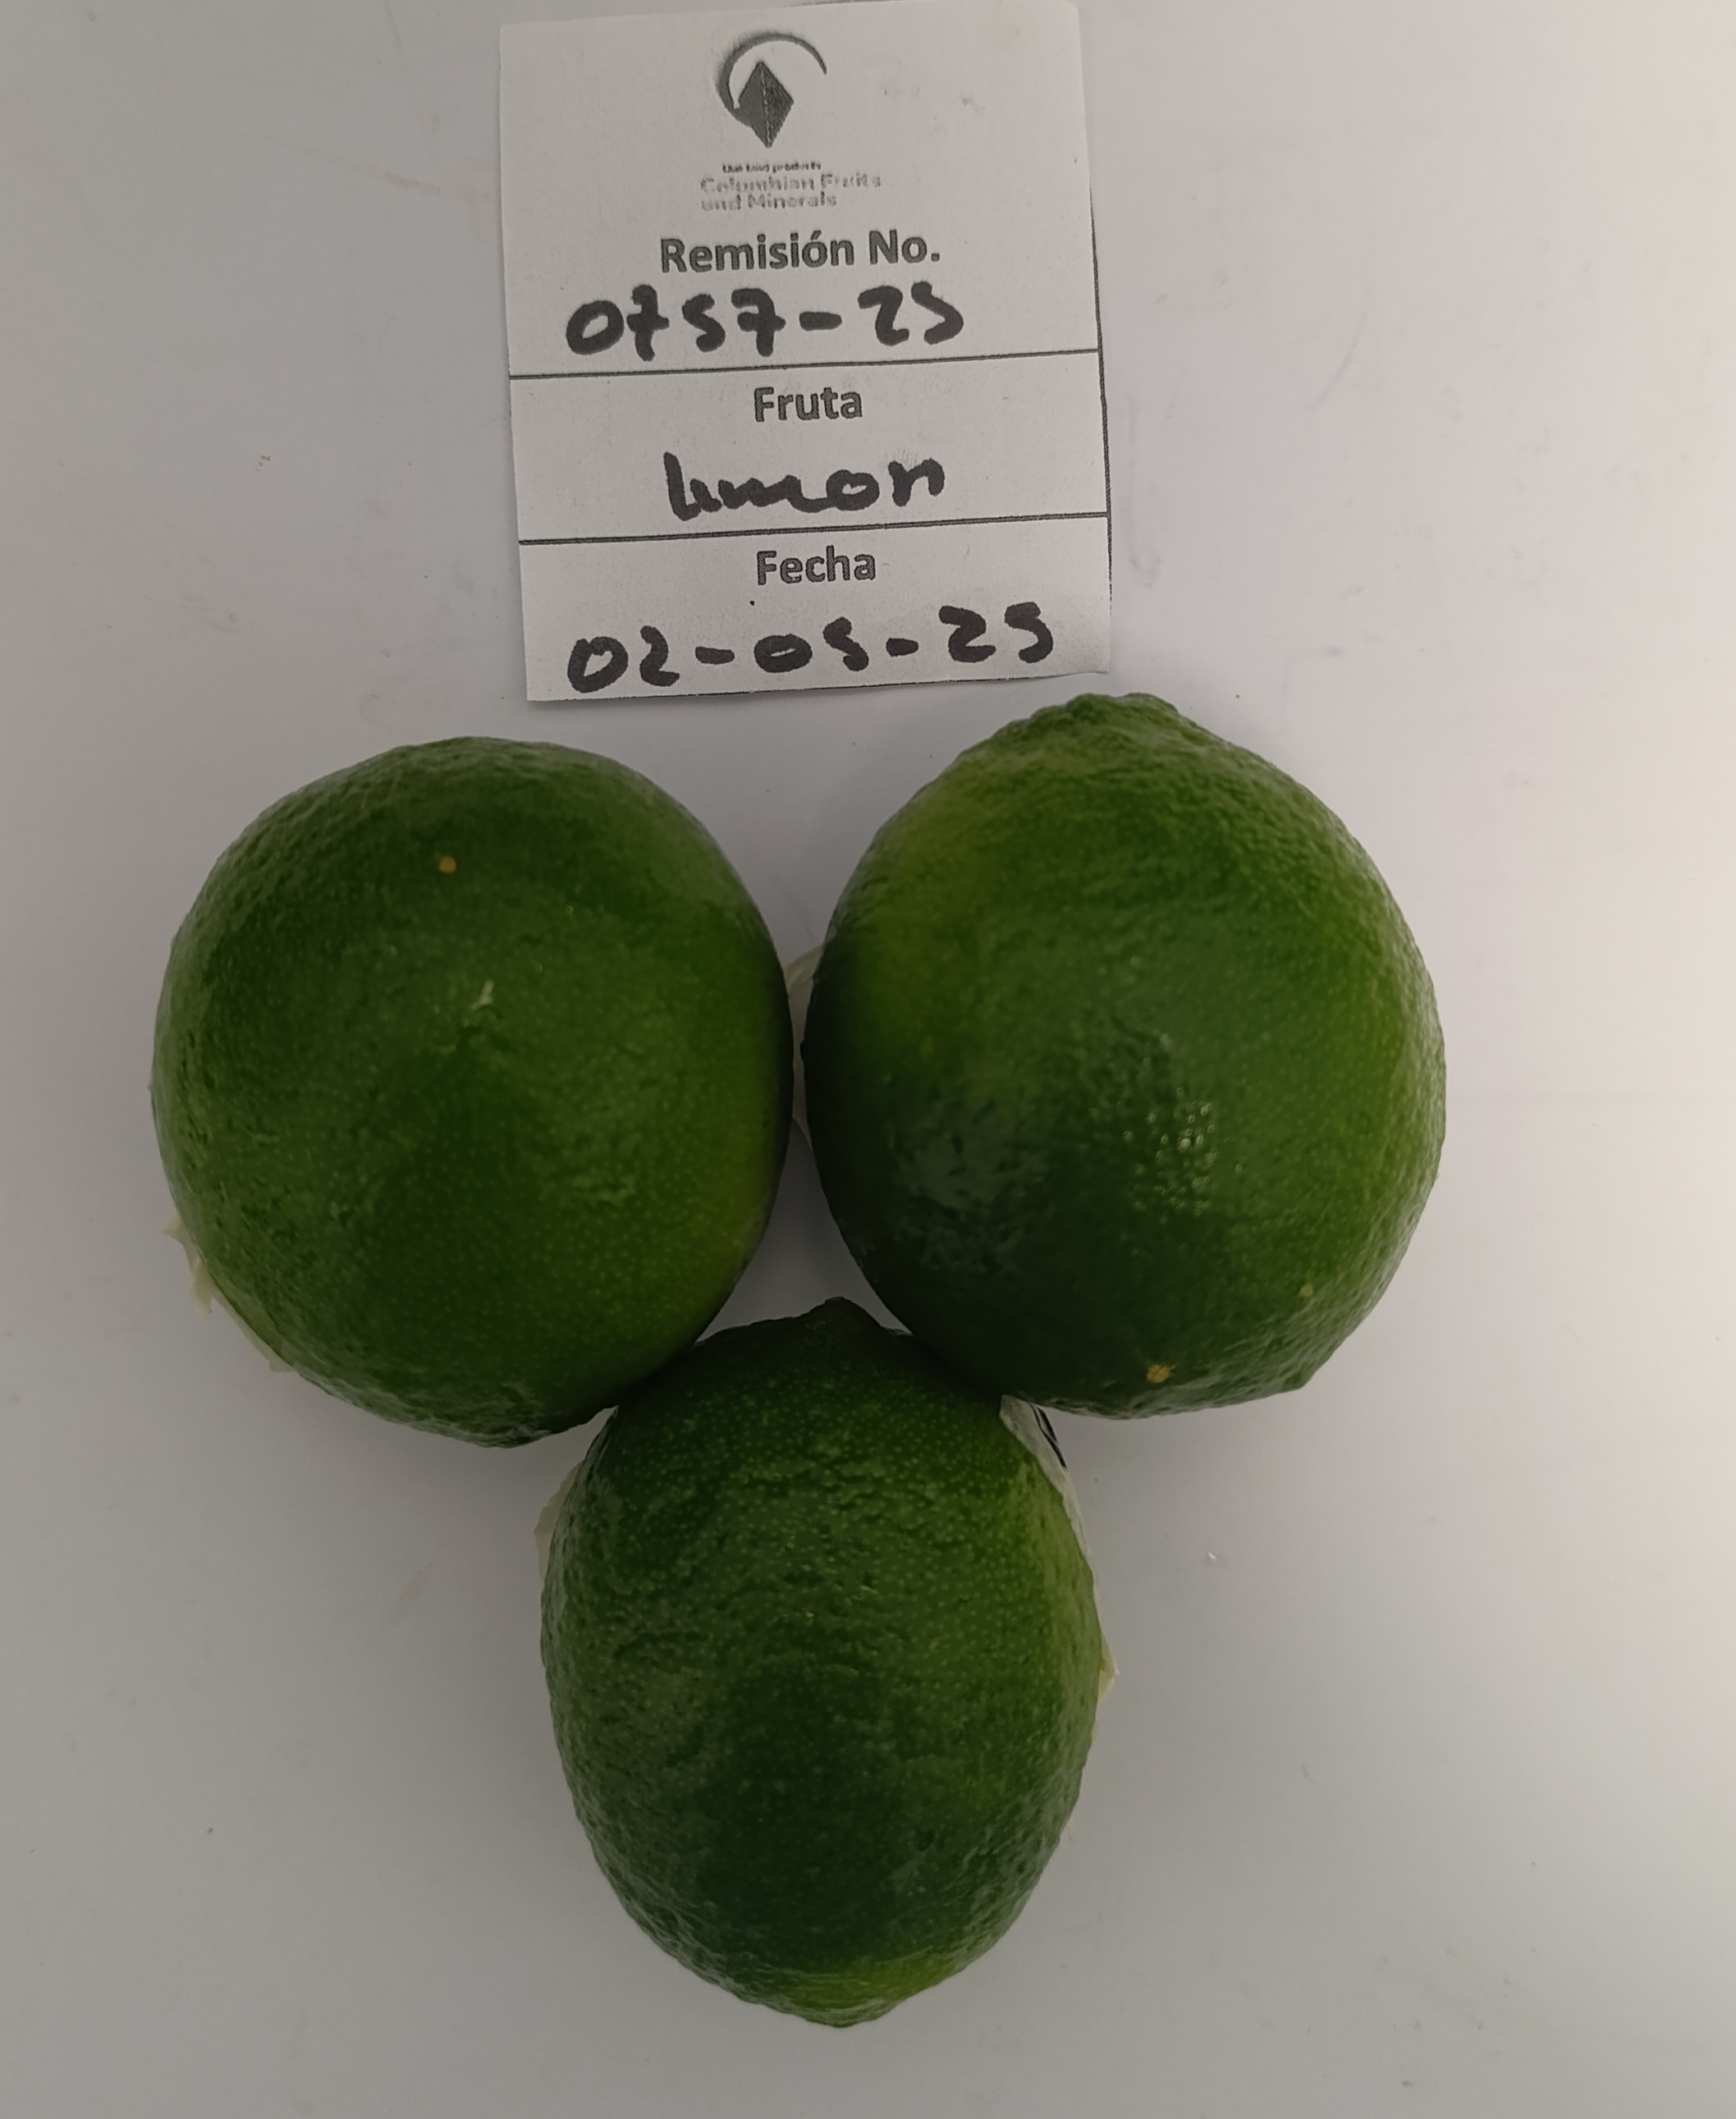 Colombian Fruits
and Minerals
Remisión No.
0757-25
Fruta
limon
Fecha
02-05-25